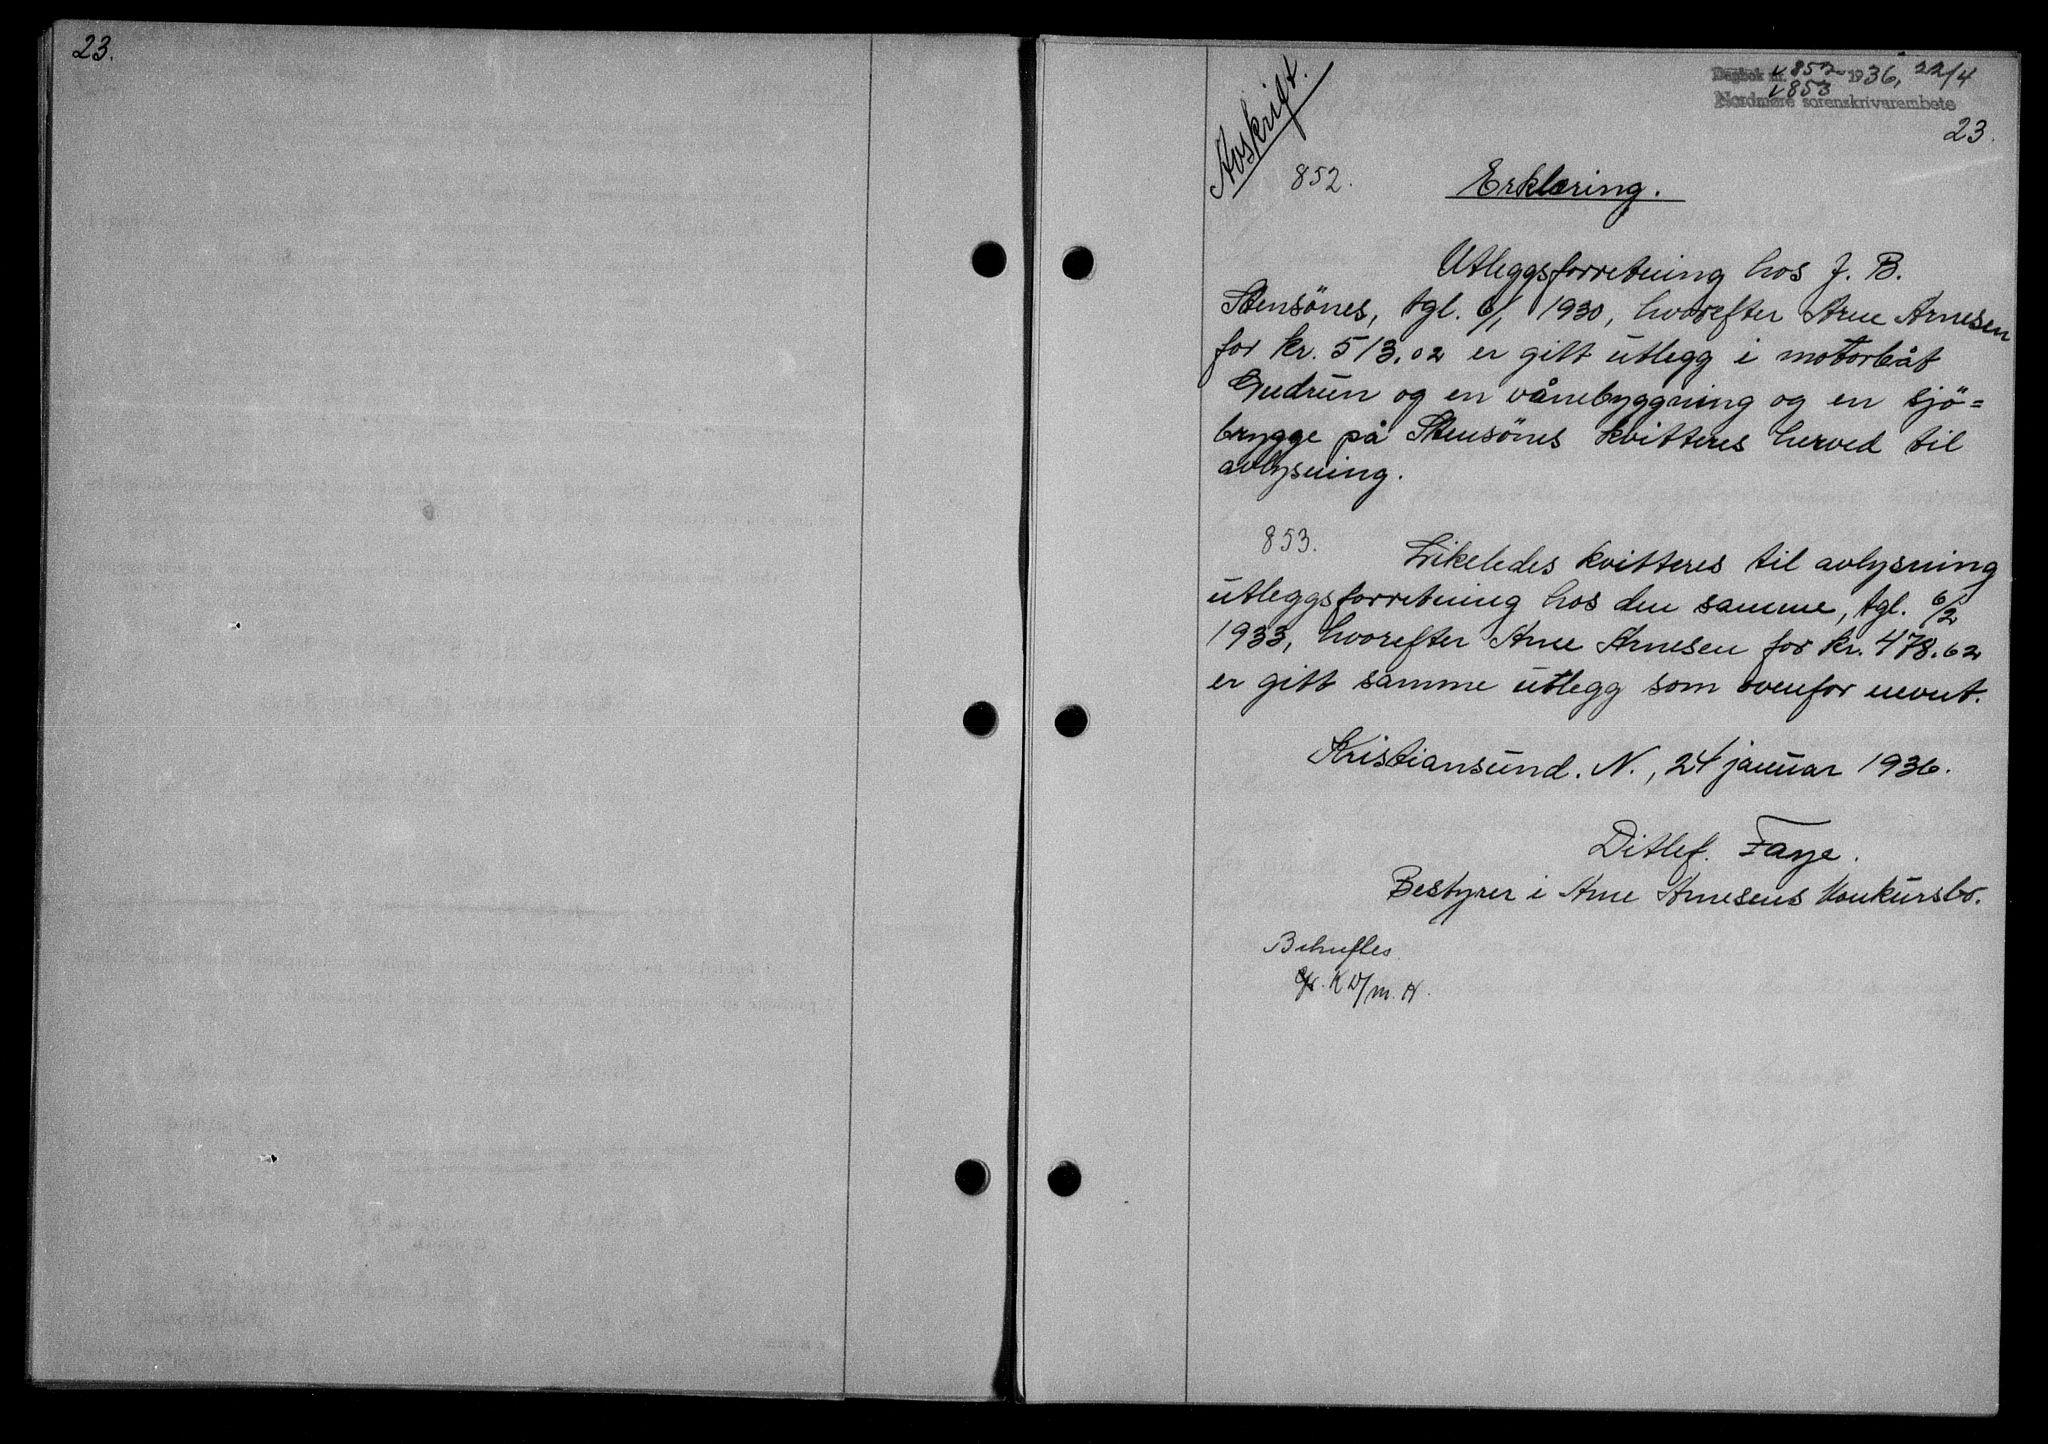 23.
Dagbok nr. 852 1936, 22/4
853
Nordmøre sorenskrivarembete
23.
Avskrift.
852.
Erklæring.
Utleggsforretning hos J. B.
Stensönes, tgl. 6/1 1930, hvorefter Arne Arnesen
for kr. 513.02 er gitt utlegg i motorbåt
Gudrun og en vånebyggning og en sjö=
brygge på Stensönes kvitteres herved til
avlysning.
853.
Likeledes kvitteres til avlysning
utleggsforretning hos den samme, tgl. 6/2
1933, hvorefter Arne Arnesen for kr. 478.62
er gitt samme utlegg som ovenfor nevnt.
Kristiansund. N., 24 januar 1936.
Ditlef. Faye.
Bestyrer i Arne Arnesens konkursbo.